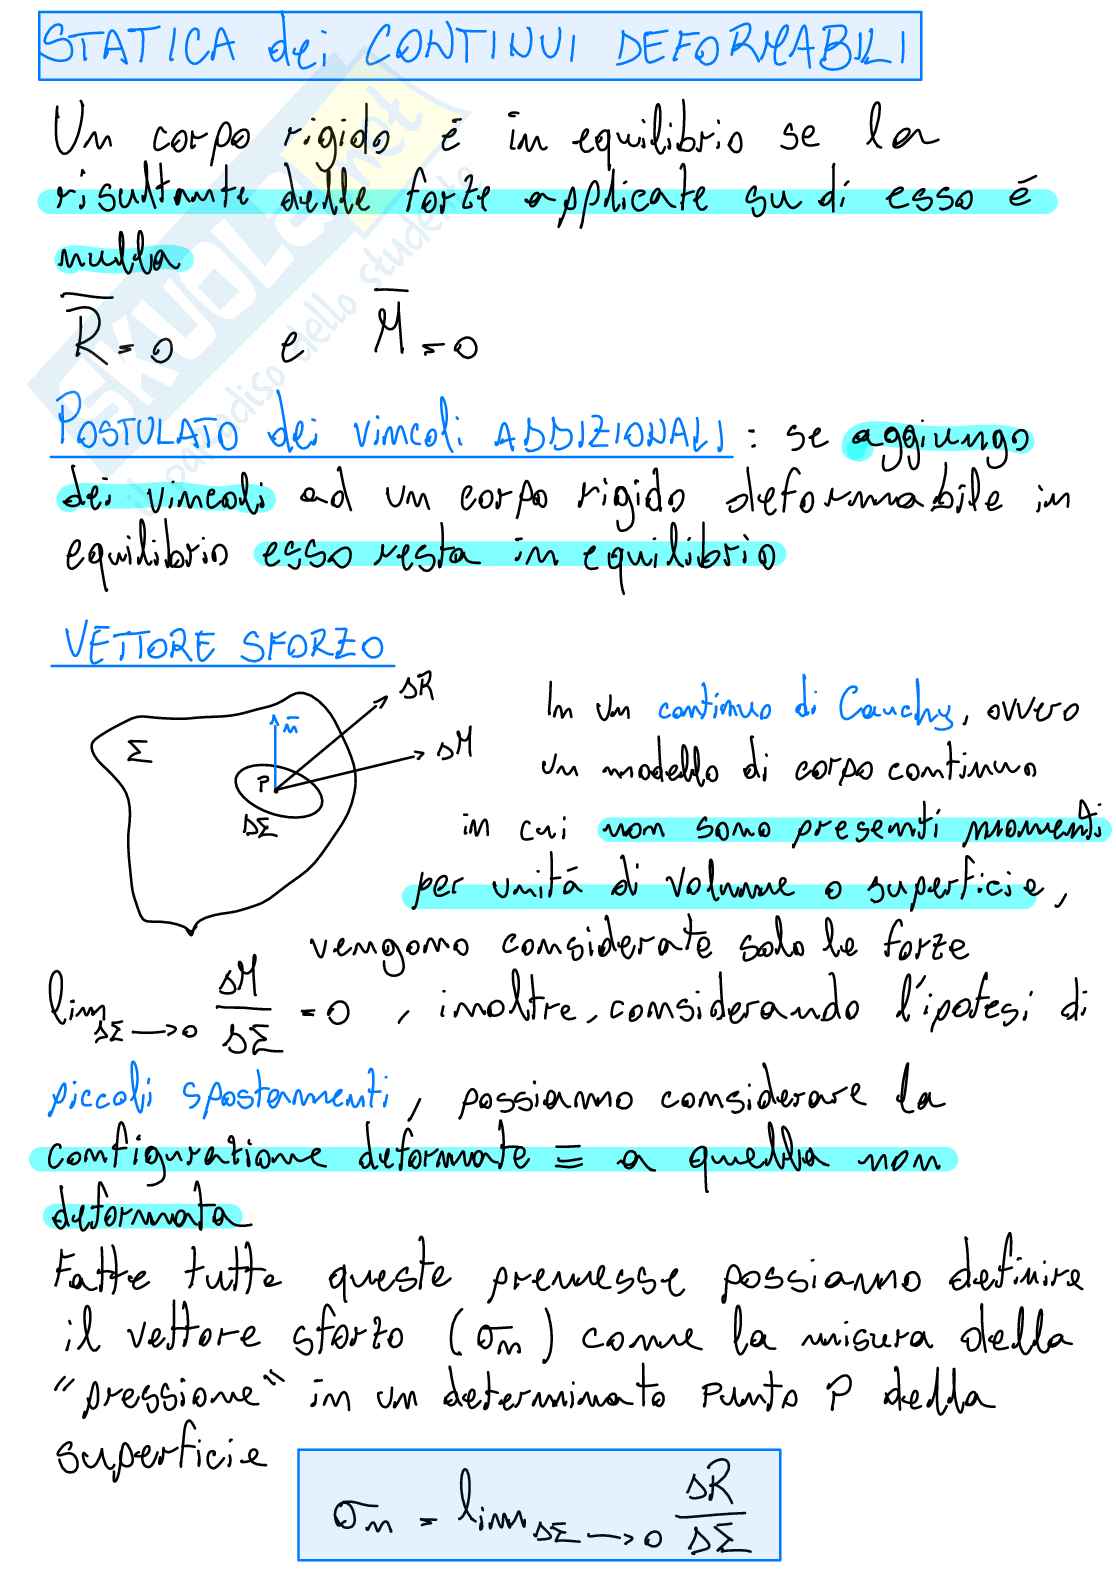 STATICA dei CONTINUI DEFORMABILI
Un corpo rigido é in equilibrio se la
risultante delle forze applicate su di esso é
nulla
R̅ = 0 e M̅ = 0
POSTULATO dei vincoli ADDIZIONALI : se aggiungo
dei vincoli ad un corpo rigido deformabile in
equilibrio esso resta in equilibrio
VETTORE SFORZO
Σ
n̅
P
ΔΣ
ΔR̅
ΔM̅
In un continuo di Cauchy, ovvero
un modello di corpo continuo
in cui non sono presenti momenti
per unitá di volume o superficie,
vengono considerate solo le forze
lim ΔΣ→0 ΔM/ΔΣ = 0 , inoltre, considerando l'ipotesi di
piccoli spostamenti, possiamo considerare la
configurazione deformate ≡ a quella non
deformata
Fatte tutte queste premesse possiamo definire
il vettore sforzo (σn) come la misura della
"pressione" in un determinato punto P della
superficie
σn = lim ΔΣ→0 ΔR/ΔΣ
SKUOLA.net
il paradiso dello studente